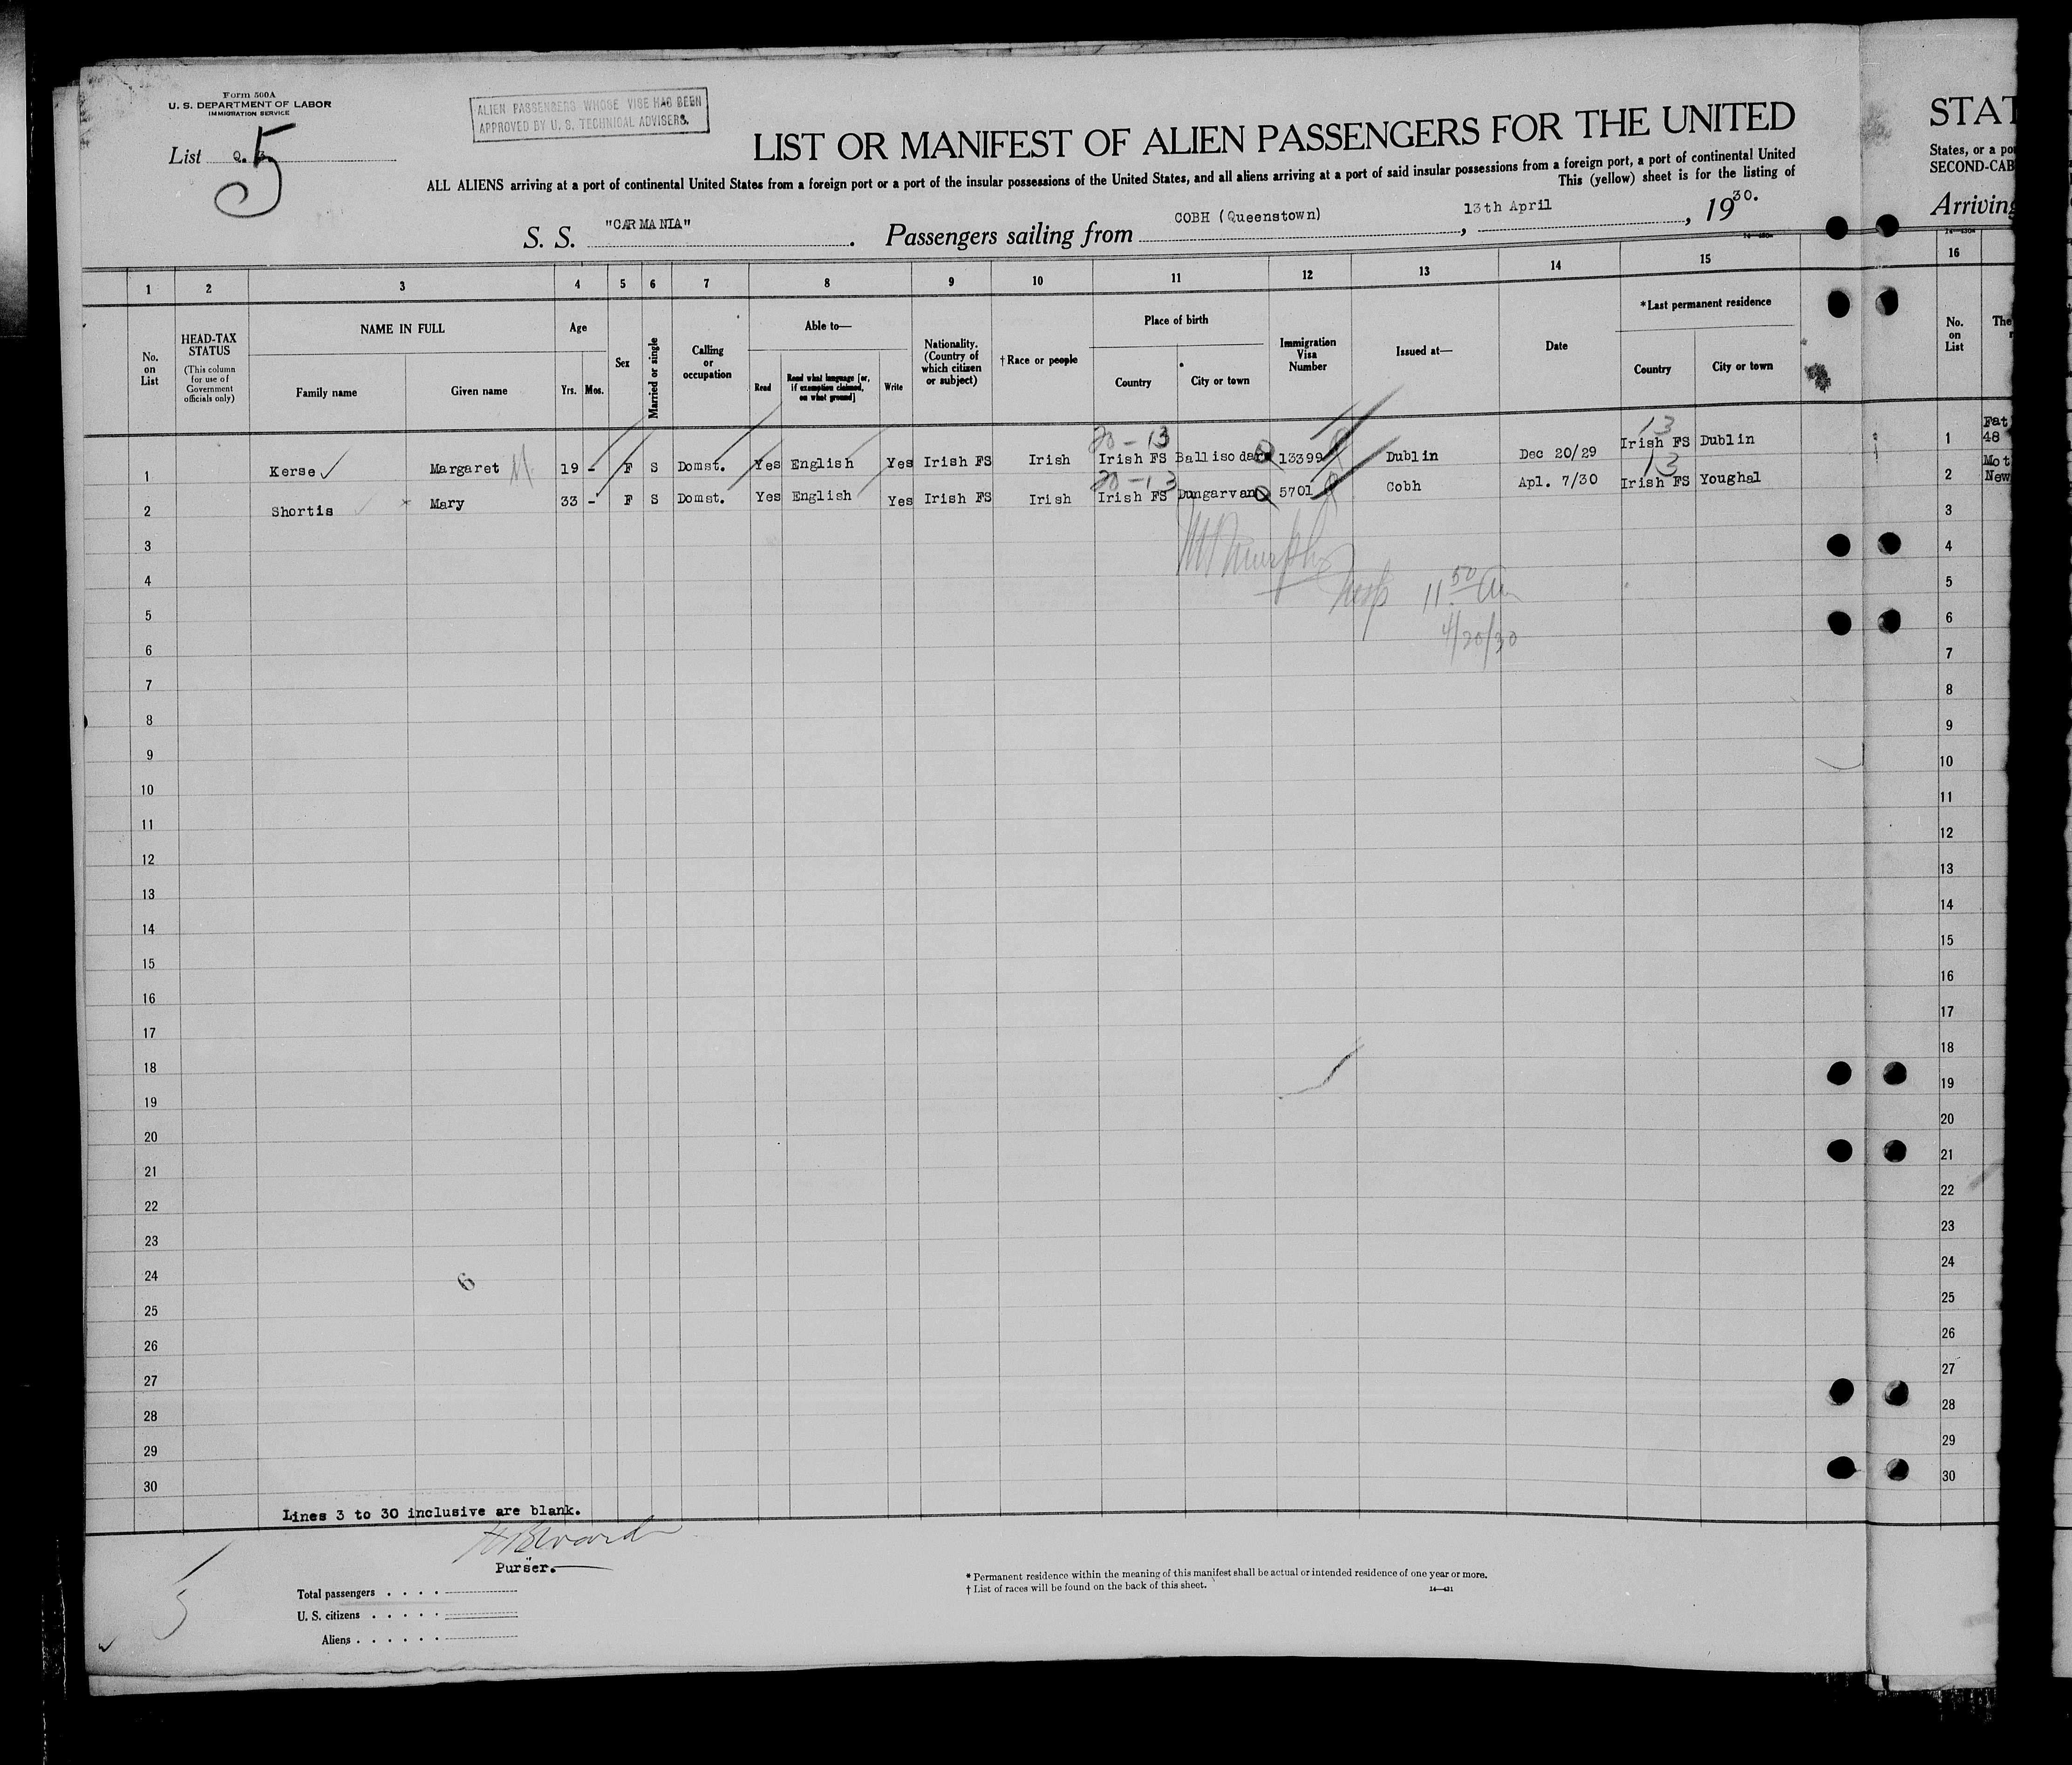 Form 500A
U. S. DEPARTMENT OF LABOR
IMMIGRATION SERVICE
ALIEN PASSENGERS WHOSE VISE HAS BEEN
APPROVED BY U. S. TECHNICAL ADVISERS.
List 5
LIST OR MANIFEST OF ALIEN PASSENGERS FOR THE UNITED
ALL ALIENS arriving at a port of continental United States from a foreign port or a port of the insular possessions of the United States, and all aliens arriving at a port of said insular possessions from a foreign port, a port of continental United
This (yellow) sheet is for the listing of
S. S. "CARMANIA". Passengers sailing from COBH (Queenstown), 13th April, 1930.
STAT
States, or a po
SECOND-CAB
Arriving
1 2 3 4 5 6 7 8 9 10 11 12 13 14 15 16
No. on List
HEAD-TAX STATUS (This column for use of Government officials only)
NAME IN FULL
Family name Given name
Age
Yrs. Mos.
Sex
Married or single
Calling or occupation
Able to—
Read Read what language [or, if exemption claimed, on what ground] Write
Nationality. (Country of which citizen or subject)
† Race or people
Place of birth
Country City or town
Immigration Visa Number
Issued at—
Date
*Last permanent residence
Country City or town
No. on List
The
20-13 13
1 Kerse Margaret 19 - F S Domst. Yes English Yes Irish FS Irish Irish FS Ballisodare 13399 Dublin Dec 20/29 Irish FS Dublin 1 Fat 48
20-13 13
2 Shortis Mary 33 - F S Domst. Yes English Yes Irish FS Irish Irish FS Dungarvan 5701 Cobh Apl. 7/30 Irish FS Youghal 2 Mot New
3 3
4 4
5 5
6 6
7 7
8 8
9 9
10 10
11 11
12 12
13 13
14 14
15 15
16 16
17 17
18 18
19 19
20 20
21 21
22 22
23 23
24 24
25 25
26 26
27 27
28 28
29 29
30 30
Murphy
Insp 11 50 am
4/20/30
6
Lines 3 to 30 inclusive are blank.
Purser.
Total passengers
U. S. citizens
Aliens
5
* Permanent residence within the meaning of this manifest shall be actual or intended residence of one year or more.
† List of races will be found on the back of this sheet.
14—431